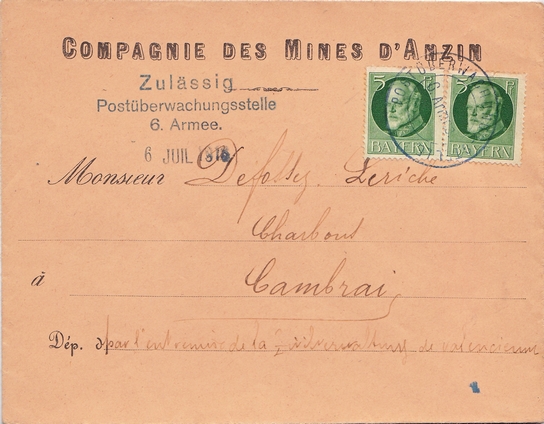 COMPAGNIE DES MINES D'ANZIN
Zulässig
Postüberwachungsstelle
6. Armee.
6 JUIL 1916
5 Pf
BAYERN
5 Pf
BAYERN
Monsieur
Charbons
à Cambrai
Dép. par l'entremise de la Zivilverwaltung de Valenciennes